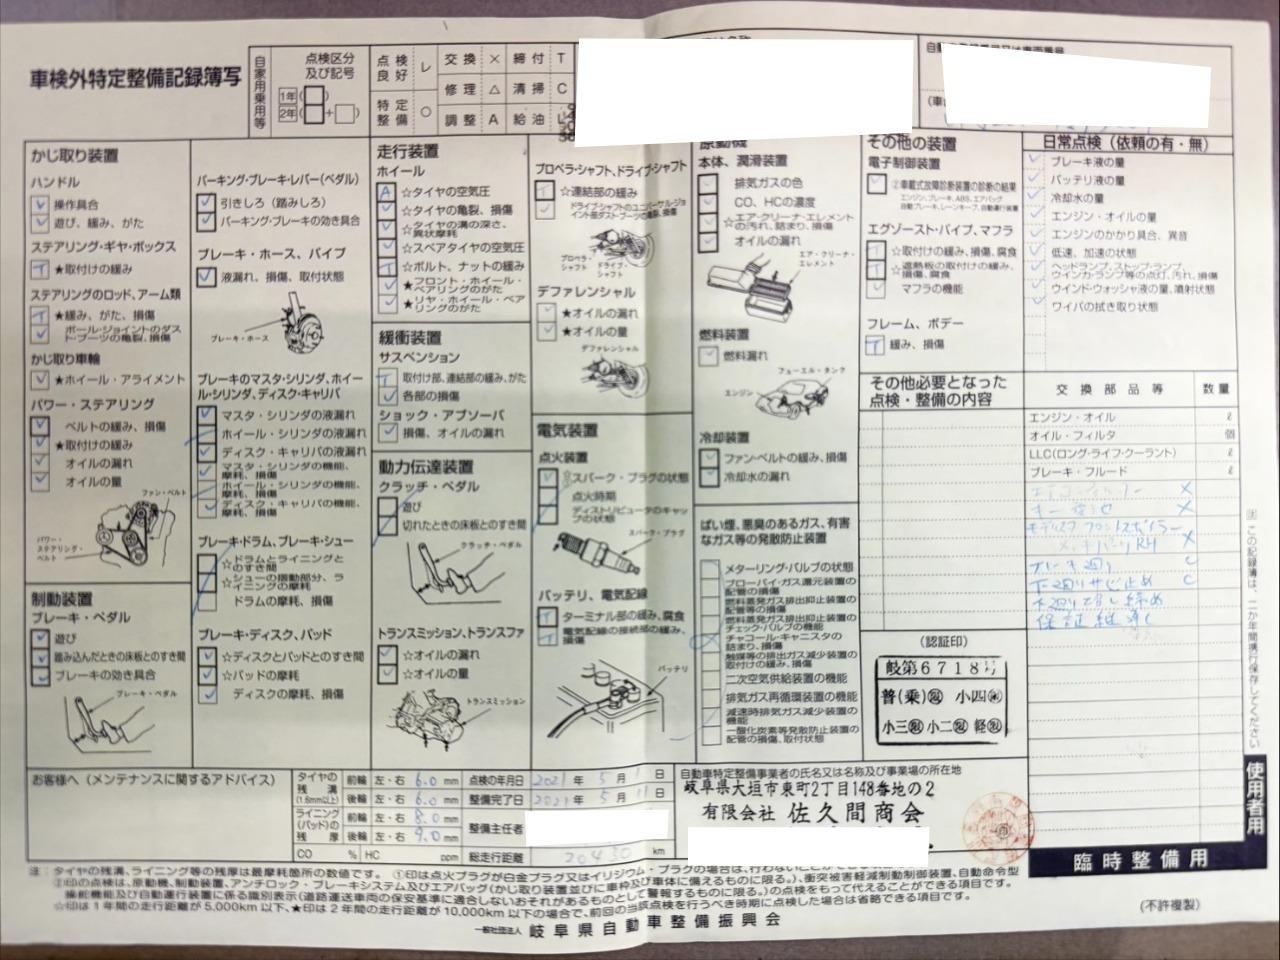 車検外特定整備記録簿写
自家用乗用等
点検区分及び記号
1年( )
2年( + )
点検良好 レ 交換 × 締付 T
特定整備 ○ 修理 △ 清掃 C
調整 A 給油 L
かじ取り装置
ハンドル
操作具合
遊び、緩み、がた
ステアリング・ギヤ・ボックス
★取付けの緩み
ステアリングのロッド、アーム類
★緩み、がた、損傷
ボール・ジョイントのダスト・ブーツの亀裂、損傷
かじ取り車輪
★ホイール・アライメント
パワー・ステアリング
ベルトの緩み、損傷
★取付けの緩み
オイルの漏れ
オイルの量
ファン・ベルト
パワー・ステアリング・ベルト
制動装置
ブレーキ・ペダル
遊び
踏み込んだときの床板とのすき間
ブレーキの効き具合
ブレーキ・ペダル
パーキング・ブレーキ・レバー(ペダル)
引きしろ(踏みしろ)
パーキング・ブレーキの効き具合
ブレーキ・ホース、パイプ
液漏れ、損傷、取付状態
ブレーキ・ホース
ブレーキのマスタ・シリンダ、ホイール・シリンダ、ディスク・キャリパ
マスタ・シリンダの液漏れ
ホイール・シリンダの液漏れ
ディスク・キャリパの液漏れ
マスタ・シリンダの機能、摩耗、損傷
ホイール・シリンダの機能、摩耗、損傷
ディスク・キャリパの機能、摩耗、損傷
ブレーキ・ドラム、ブレーキ・シュー
☆ドラムとライニングとのすき間
☆シューの摺動部分、ライニングの摩耗
ドラムの摩耗、損傷
ブレーキ・ディスク、パッド
☆ディスクとパッドとのすき間
☆パッドの摩耗
ディスクの摩耗、損傷
走行装置
ホイール
A ☆タイヤの空気圧
☆タイヤの亀裂、損傷
☆タイヤの溝の深さ、異状摩耗
☆スペアタイヤの空気圧
T ☆ボルト、ナットの緩み
★フロント・ホイール・ベアリングのがた
★リヤ・ホイール・ベアリングのがた
緩衝装置
サスペンション
T 取付け部、連結部の緩み、がた
各部の損傷
ショック・アブソーバ
損傷、オイルの漏れ
動力伝達装置
クラッチ・ペダル
遊び
切れたときの床板とのすき間
クラッチ・ペダル
トランスミッション、トランスファ
☆オイルの漏れ
☆オイルの量
トランスミッション
プロペラ・シャフト、ドライブ・シャフト
T ☆連結部の緩み
ドライブ・シャフトのユニバーサル・ジョイント部ダスト・ブーツの亀裂、損傷
プロペラ・シャフト
ドライブ・シャフト
デファレンシャル
★オイルの漏れ
★オイルの量
デファレンシャル
電気装置
点火装置
☆スパーク・プラグの状態
点火時期
ディストリビュータのキャップの状態
スパーク・プラグ
バッテリ、電気配線
T ターミナル部の緩み、腐食
T 電気配線の接続部の緩み、損傷
バッテリ
原動機
本体、潤滑装置
排気ガスの色
CO、HCの濃度
☆エア・クリーナ・エレメントの汚れ、詰まり、損傷
オイルの漏れ
エア・クリーナ・エレメント
燃料装置
燃料漏れ
フューエル・タンク
エンジン
冷却装置
ファン・ベルトの緩み、損傷
冷却水の漏れ
ばい煙、悪臭のあるガス、有害なガス等の発散防止装置
メターリング・バルブの状態
ブローバイ・ガス還元装置の配管の損傷
燃料蒸発ガス排出抑止装置の配管等の損傷
燃料蒸発ガス排出抑止装置のチェック・バルブの機能
チャコール・キャニスタの詰まり、損傷
触媒等の排出ガス減少装置の取付けの緩み、損傷
二次空気供給装置の機能
排気ガス再循環装置の機能
減速時排気ガス減少装置の機能
一酸化炭素等発散防止装置の配管の損傷、取付状態
その他の装置
電子制御装置
②車載式故障診断装置の診断の結果
エンジン、ブレーキ、ABS、エアバッグ
自動ブレーキ、レーンキープ、自動運行装置
エグゾースト・パイプ、マフラ
T ☆取付けの緩み、損傷、腐食
T ☆遮熱板の取付けの緩み、損傷、腐食
マフラの機能
フレーム、ボデー
T 緩み、損傷
その他必要となった点検・整備の内容
(認証印)
岐第6718号
日常点検(依頼の有・無)
ブレーキ液の量
バッテリ液の量
冷却水の量
エンジン・オイルの量
エンジンのかかり具合、異音
低速、加速の状態
ヘッドランプ、ストップ・ランプ、ウインカ・ランプ等の点灯、汚れ、損傷
ウインド・ウォッシャ液の量、噴射状態
ワイパの拭き取り状態
交換部品等 数量
エンジン・オイル ℓ
オイル・フィルタ 個
LLC(ロング・ライフ・クーラント) ℓ
ブレーキ・フルード ℓ
ブレーキ廻り C
下廻りサビ止め C
下廻り増し締め
保証継承
注 この記録簿は、二か年間携行保存してください
使用者用
お客様へ(メンテナンスに関するアドバイス)
タイヤの残溝(1.6mm以上) 前輪 左・右 6.0 mm
後輪 左・右 6.0 mm
ライニング(パッド)の残厚 前輪 左・右 8.0 mm
後輪 左・右 9.0 mm
CO % HC ppm
点検の年月日 2021年 5月 日
整備完了日 2021年 5月 11日
整備主任者
総走行距離 20430 km
自動車特定整備事業者の氏名又は名称及び事業場の所在地
岐阜県大垣市東町2丁目148番地の2
有限会社 佐久間商会
臨時整備用
注:タイヤの残溝、ライニング等の残厚は最摩耗箇所の数値です。 ①印は点火プラグが白金プラグ又はイリジウム・プラグの場合は、行わないこ
②印の点検は、原動機、制動装置、アンチロック・ブレーキシステム及びエアバッグ(かじ取り装置並びに車枠及び車体に備えるものに限る。)、衝突被害軽減制動制御装置、自動命令型
操舵機能及び自動運行装置に係る識別表示(道路運送車両の保安基準に適合しないおそれがあるものとして警報するものに限る。)の点検をもって代えることができる項目です。
☆印は1年間の走行距離が5,000km以下、★印は2年間の走行距離が10,000km以下の場合で、前回の当該点検を行うべき時期に点検した場合は省略できる項目です。
一般社団法人 岐阜県自動車整備振興会
(不許複製)